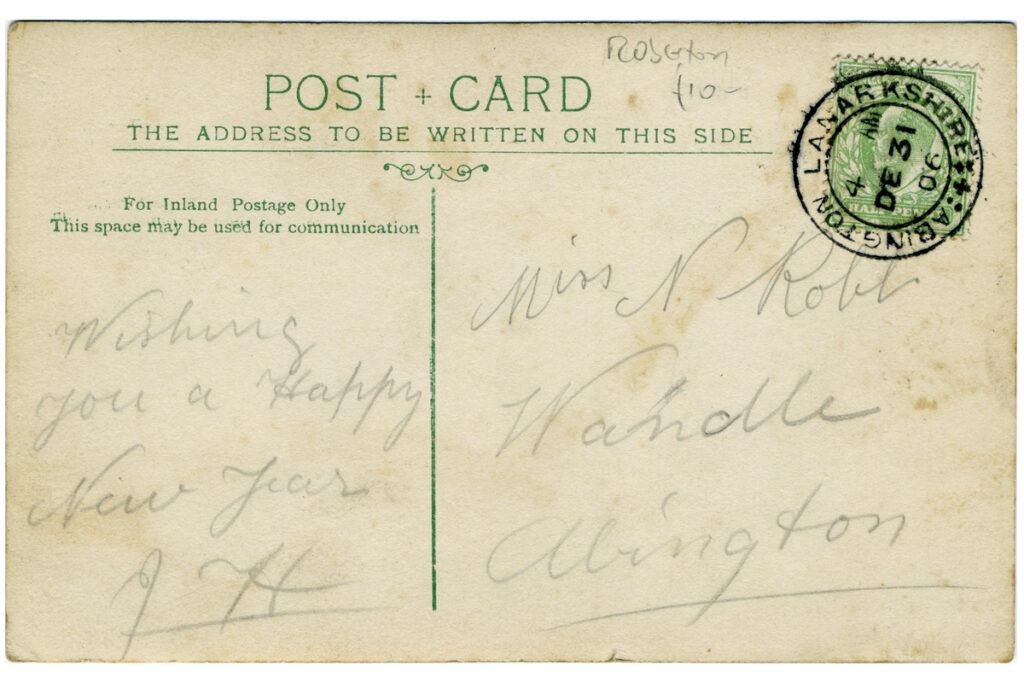 Roberton
£10-
POST + CARD
THE ADDRESS TO BE WRITTEN ON THIS SIDE
For Inland Postage Only
This space may be used for communication
Wishing
you a Happy
New Year
J H
ABINGTON LANARKSHIRE
4 AM
DE 31
06
HALF PEN
Miss N Robb
Wandle
Abington